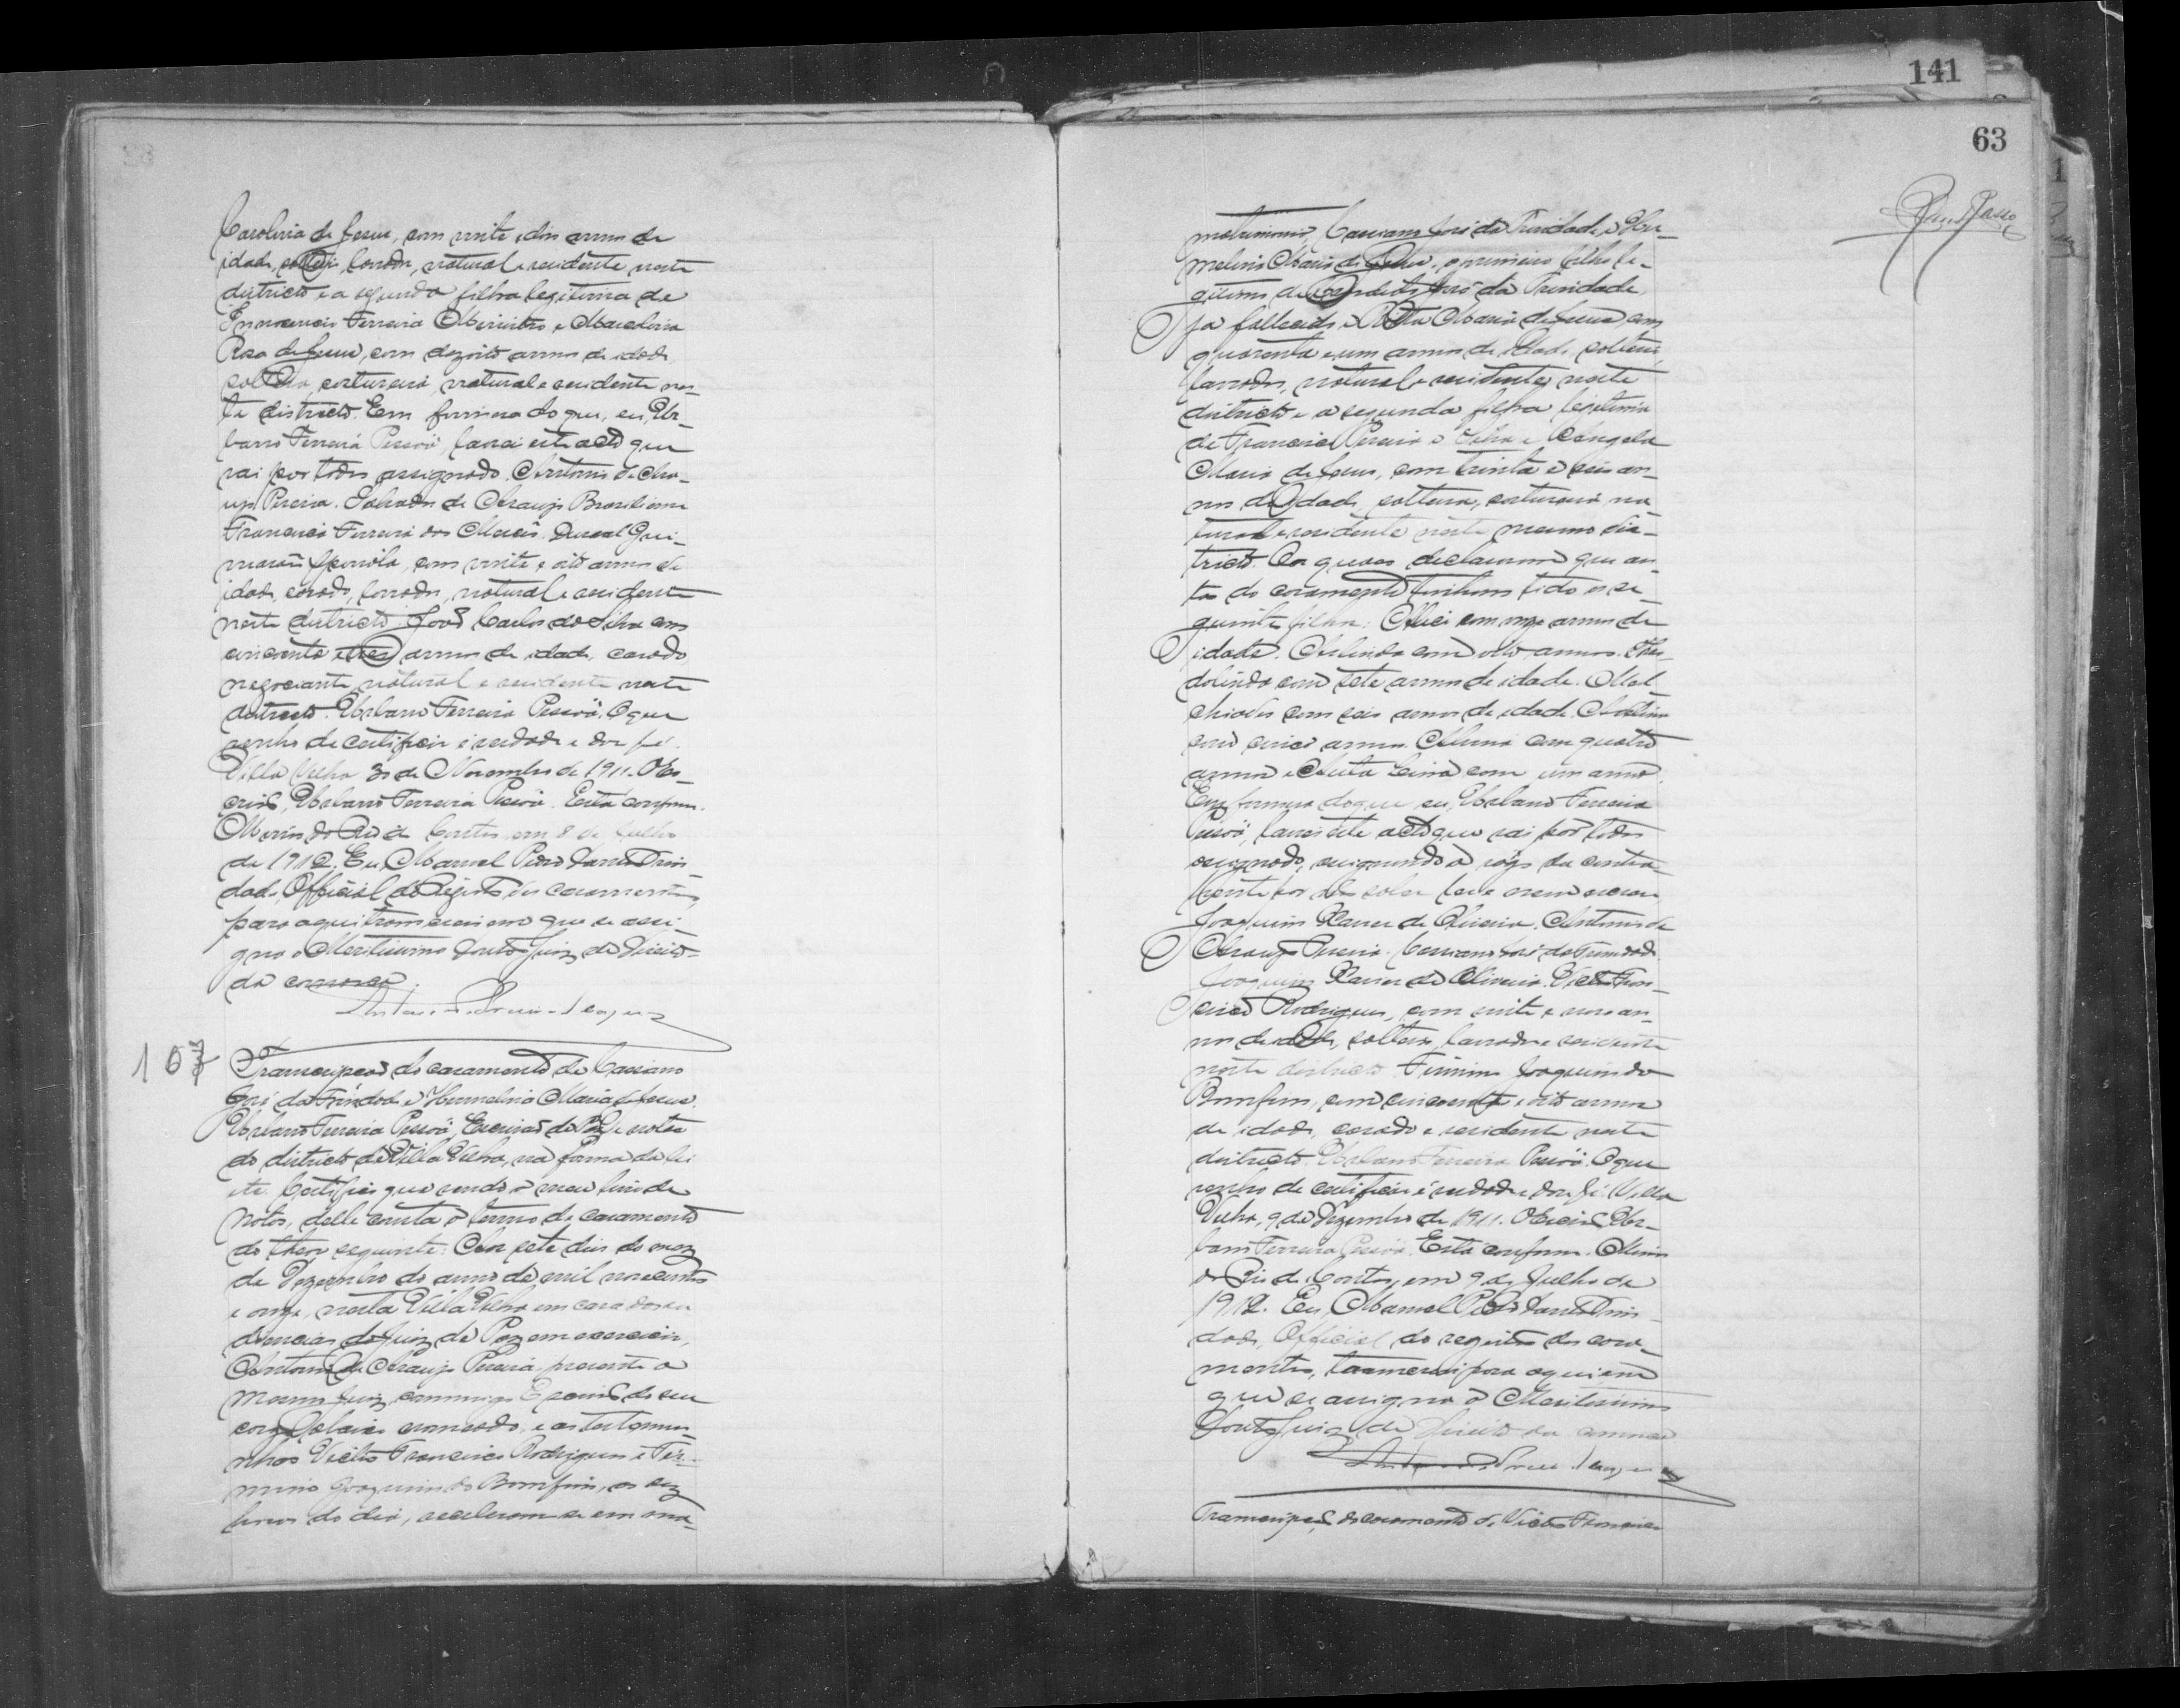 Carolina de Jesus, com vinte e dois annos de
idade, solteiro, lavrador, natural e residente neste
districto e a segunda filha legitima de
Innocencio Ferreira e Marcolina
Rosa de Jesus, com dezoito annos de idade
solteira, costureira, natural e residente nes-
te districto. Em firmeza do que, eu, Ur-
bano Ferreira Pessôa, lavrei este acto que
vai por todos assignado. Antonio de Ara-
ujo Pereira. Salvador de Araujo Brasiliano
Francisco Ferreira dos Durval Gui-
marães com vinte e oito annos de
idade, casado, lavrador, natural e residente
neste districto. João Carlos da Silva com
cincoenta e tres annos de idade, casado
negociante natural e residente neste
districto. Urbano Ferreira Pessôa. O que
venho de certificar é verdade e dou fé.
Villa Velha 30 de Novembro de 1911. O Es-
crivão, Urbano Ferreira Pessôa. Está conforme.
Minas do Rio de Contas, em 8 de Julho
de 1912. Eu, Manoel Pedro Trin-
dade, Official do Registro dos casamentos,
para aqui transcrevi em que se assi-
gna o Meritissimo Doutor Juiz de Direito
da comarca.
107 Transcripção do casamento de Cassiano
José da Trindade e Hermelina Maria de Jesus.
Urbano Ferreira Pessôa, Escrivão de Paz e notas
do districto de Villa Velha, na forma da lei
etc. Certifico que vendo o meu livro de
Notas, delle consta o termo de casamento
do theor seguinte: Aos sete dias do mez
de Dezembro do anno de mil novecentos
e onze, nesta Villa Velha em casa das au
diencias do Juiz de Paz em exercicio,
Antonio de Araujo Pereira, presente o
mesmo Juiz, commigo Escrivão de seu
cargo abaixo nomeado, e as testemu-
nhas Victor Francisco Rodrigues e Fir-
mino Joaquim do Bomfim, as dez
horas do dia, receberam-se em ma-
141
63
matrimonio, Cassiano José da Trindade e Her-
melina Maria de Jesus, o primeiro filho le-
gitimo de Benedicto José da Trindade,
já fallecido e Maria de Jesus, com
quarenta e um annos de idade, solteiro,
lavrador, natural e residente neste
districto e a segunda filha legitima
de Francisco Pereira e Silva e Angela
Maria de Jesus, com trinta e seis an-
nos de idade, solteira, costureira, na-
tural e residente neste mesmo dis-
tricto. Os quaes declararam que an-
tes do casamento tinham tido os se-
guintes filhos: com onze annos de
idade. Arlindo com oito annos.
dolindo com sete annos de idade. Mel-
chiades com seis annos de idade.
com cinco annos. com quatro
annos e com um anno.
Em firmeza do que eu, Urbano Ferreira
Pessôa, lavrei este acto que vai por todos
assignado, assignando a rogo da contra-
hente por não saber ler e nem escrever
Joaquim Xavier de Oliveira. Antonio de
Araujo Pereira. Cassiano José da Trindade.
Joaquim Xavier de Oliveira. Victor Fran-
cisco Rodrigues, com vinte e nove an-
nos de idade, solteiro, lavrador e residente
neste districto. Firmino Joaquim do
Bomfim, com cincoenta e oito annos
de idade, casado e residente neste
districto. Urbano Ferreira Pessôa. O que
venho de certificar é verdade e dou fé. Villa
Velha, 9 de Dezembro de 1911. O Escrivão, Ur-
bano Ferreira Pessôa. Está conforme. Minas
do Rio de Contas, em 9 de Julho de
1912. Eu, Manoel Pedro Trin-
dade, Official do registro dos casa-
mentos, transcrevi para aqui em
que se assigna o Meritissimo
Doutor Juiz de Direito da comarca
Transcripção do casamento de Victor Francisco